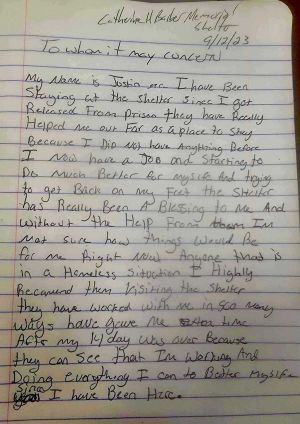 Catherine H Barber Memorial
Shelter
9/12/23
To whom it may concern
My Name is Justin I have Been
Staying at the Shelter Since I got
Released From Prison they have Really
Helped me out Far as a place to Stay
Because I Did Not have Anything Before
I Now have a Job and Starting to
Do much Better for myself and trying
to get Back on my Feet the Shelter
has Really Been A Blessing to me And
without the Help From them Im
Not sure how things would Be
for me Right Now Anyone that is
in a Homeless Situation I Highly
Recamend them Visiting the Shelter
they have worked with me in soo many
ways have gave me time
After my 14 day was over Because
they can See that Im working And
Doing everything I can to Better myself
Since
I have Been Here.